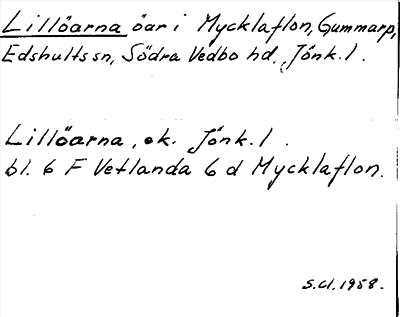 Lillöarna öar i Mycklaflon, Gummarp,
Edshults sn, Södra Vedbo hd., Jönk. l.
Lillöarna, ek. Jönk. l.
bl. 6 F Vetlanda 6 d Mycklaflon.
S.Cl. 1958.